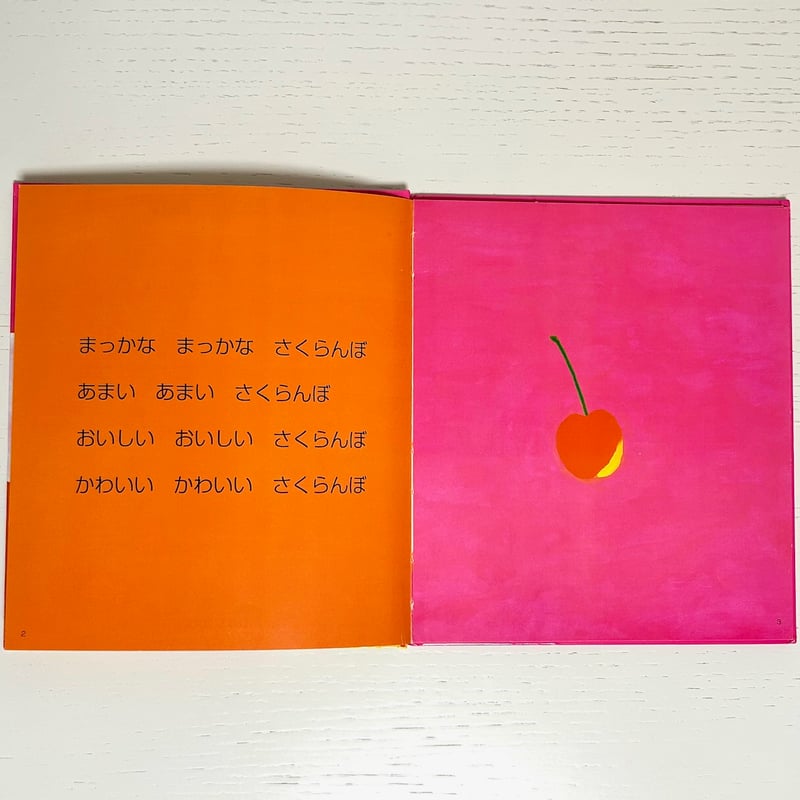 まっかな　まっかな　さくらんぼ
あまい　あまい　さくらんぼ
おいしい　おいしい　さくらんぼ
かわいい　かわいい　さくらんぼ
2
3